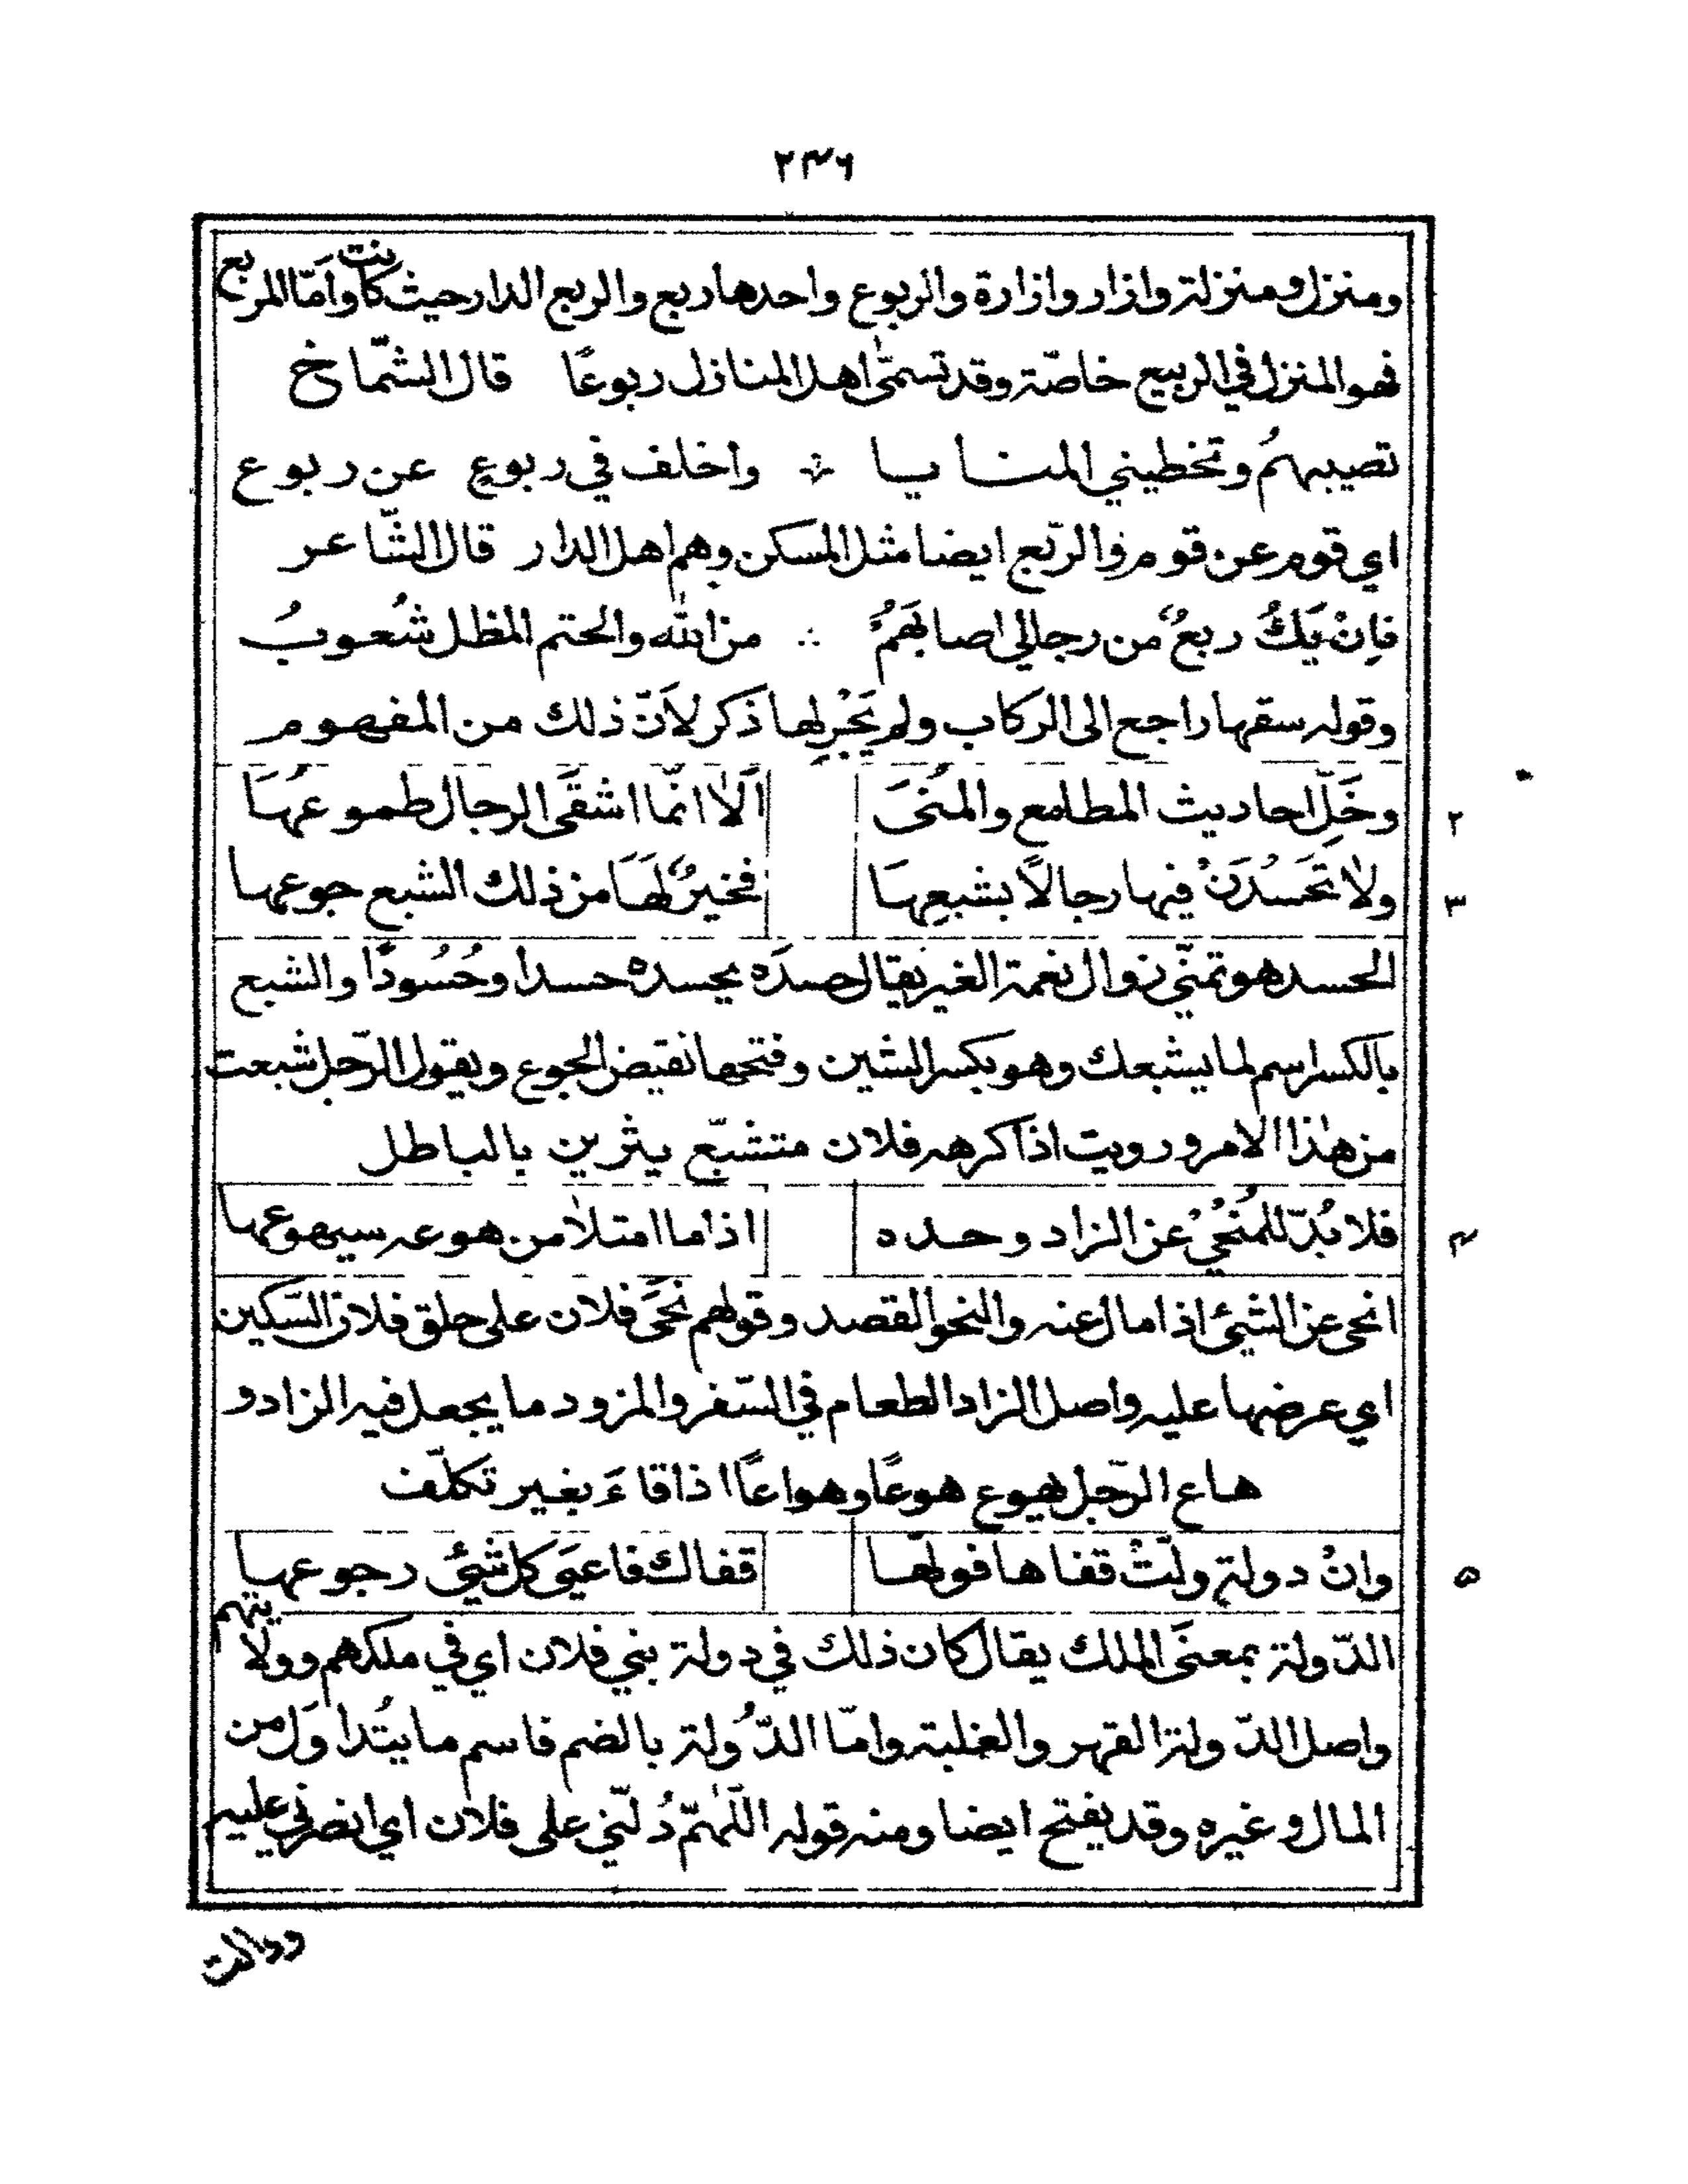 ٢٣٦
ومنزل ومنزلة وازار وازارة والربوع واحدها ربع والربع الدار حيث كانت وأمّا المربع
فهو المنزل في الربيع خاصّة وقد تسمّى اهل المنازل ربوعًا قال الشمّاخ
تصيبهمُ وتخطيني المنايا ٭ واخلف في ربوعٍ عن ربوع
اي قوم عن قوم والرّبع ايضا مثل المسكن وهم اهل الدار قال الشّاعر
فاِنْ يَكُ ربعٌ من رجالي اصابهَمُ ∴ من الله والحتم المظل شُعوبُ
وقوله سقها راجع الى الركاب ولم يَجْرِ لها ذكر لاَنّ ذلك من المفهوم
٢ وخَلِّ احاديث المطامع والمُنىَ اَلاٰ انّما اشقَى الرجال طموعُهَا
٣ ولاٰ تَحسُدَنْ فيها رجالاً بشبعِهَا فخيرٌ لهََا من ذلك الشبع جوعها
الحسد هو تمنّي زوال نعمة الغير يقال حسدَه يحسده حسدا وحُسُودًا والشبع
بالكسر اسم لما يشبعك وهو بكسر الشين وفتحها نقيض الجوع ويقول الرّجل شبعت
من هٰذا الامر ورويت اذا كرهه فلان متشبّع يثرين بالباطل
٤ فلا بُدّ للمُنحيْ عن الزاد وحده اذا ما امتلاٰ من هوعه سيهوعها
انحى عن الشيئ اذا مال عنه والنحو القصد وقولهم نحَى فلان على حلق فلان السّكين
اي عرضها عليه واصل الزاد الطعام في السّفر والمزود ما يجعل فيه الزاد و
هاع الرّجل يهوع هوعًا وهواعًا اذا قاءَ بغير تكلّف
٥ وانْ دولة ولّتْ قفاها فولها قفاك فاعيَى كل شيئ رجوعها
الدّولة بمعنَى الملك يقال كان ذلك في دولة بني فلان اي في ملكهم وولايتهم
واصل الدّولة القهر والغلبة وامّا الدُّولة بالضم فاسم ما يُتداوَل من
المال وغيره وقد يفتح ايضا ومنه قوله اللّٰهمّ دُلّني على فلان اي انصرني عليه
ودالت